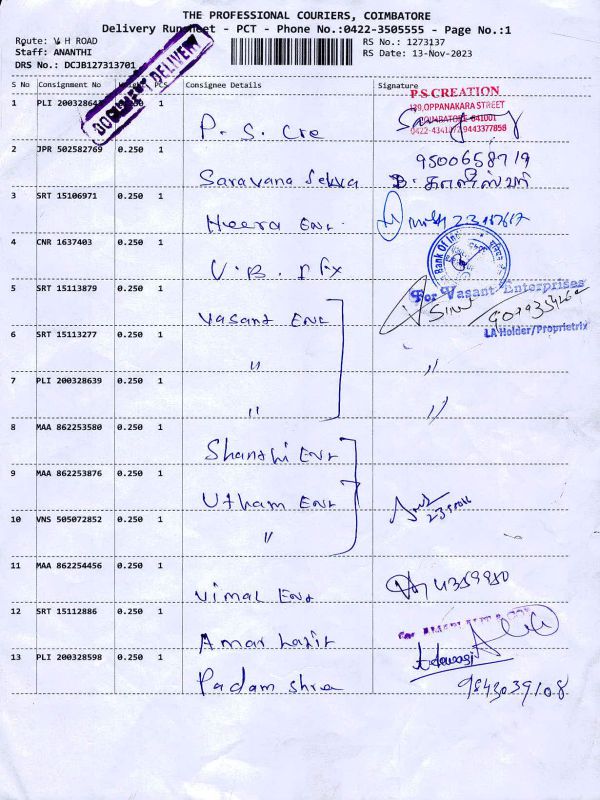 THE PROFESSIONAL COURIERS, COIMBATORE
Delivery Runsheet - PCT - Phone No.:0422-3505555 - Page No.:1
Route: V H ROAD
Staff: ANANTHI
DRS No.: DCJB127313701
RS No.: 1273137
RS Date: 13-Nov-2023
DOCUMENT DELIVERY
S No Consignment No Weight PCS Consignee Details Signature
1 PLI 1 P. S. Cre
P.S.CREATION
COIMBATORE-641001
2 JPR 502582769 0.250 1 Saravana Selva
9500658719
3 SRT 15106971 0.250 1 Heera Ent.
4 CNR 1637403 0.250 1 V.B.
Bank Of
5 SRT 15113879 0.250 1 Vasant Ent
For Vasant Enterprises
LA Holder/Proprietrix
6 SRT 15113277 0.250 1 " "
7 PLI 200328639 0.250 1 " "
8 MAA 862253580 0.250 1 Shanthi Ent
9 MAA 862253876 0.250 1 Utham Ent
10 VNS 505072852 0.250 1 "
11 MAA 862254456 0.250 1 Vimal Ent
12 SRT 15112886 0.250 1 Amar
For
13 PLI 200328598 0.250 1 Padam Shree
9843039108